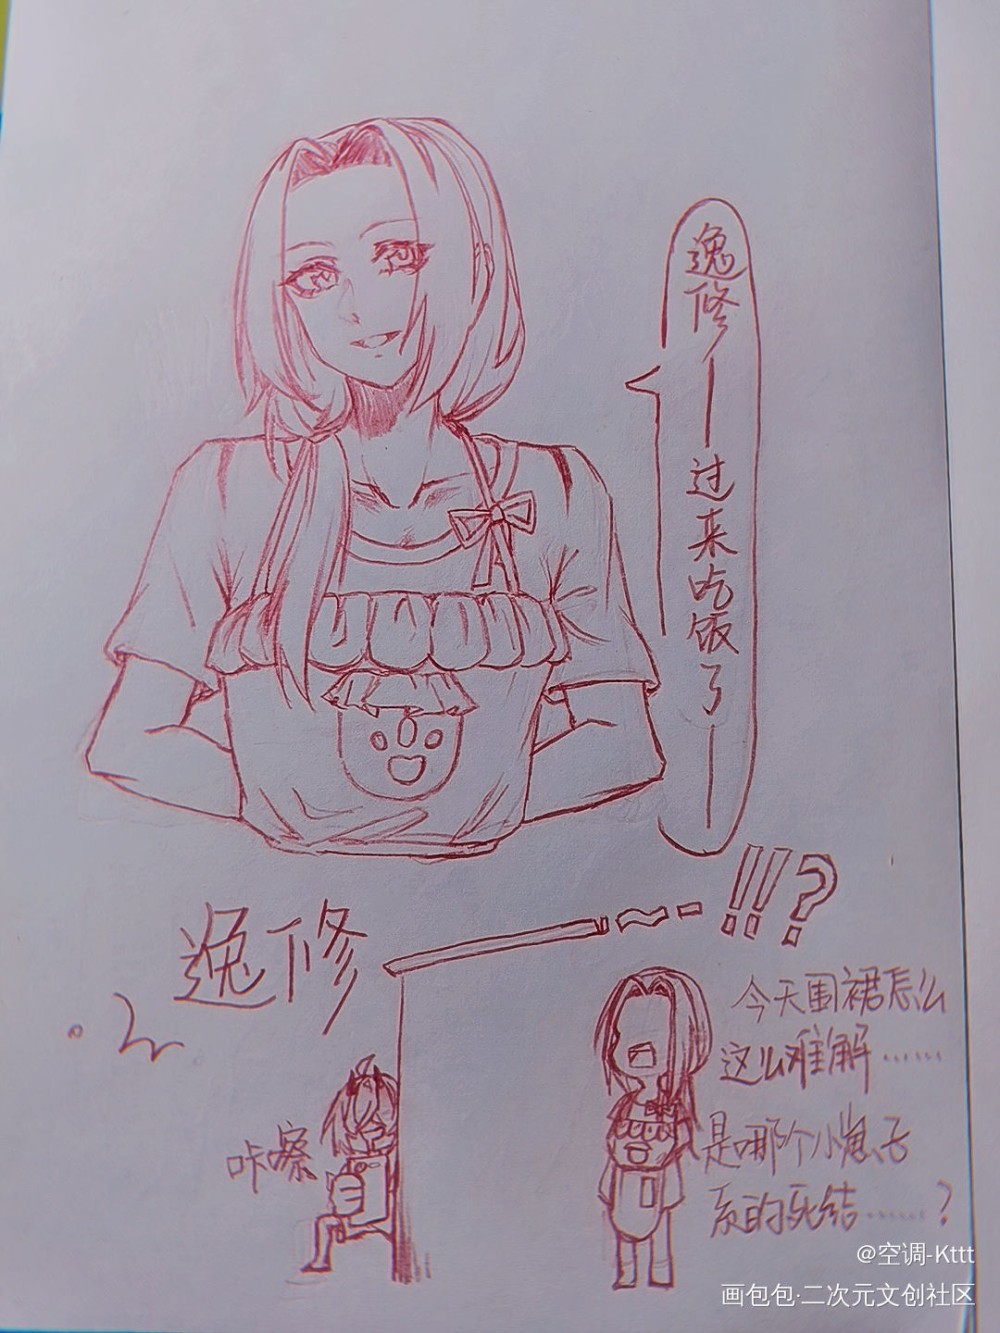 逸修——过来吃饭了——
逸修
!!?
咔嚓
今天围裙怎么
这么难解……
是哪个小兔子
系的死结……?
@空调-Kttt
画包包·二次元文创社区